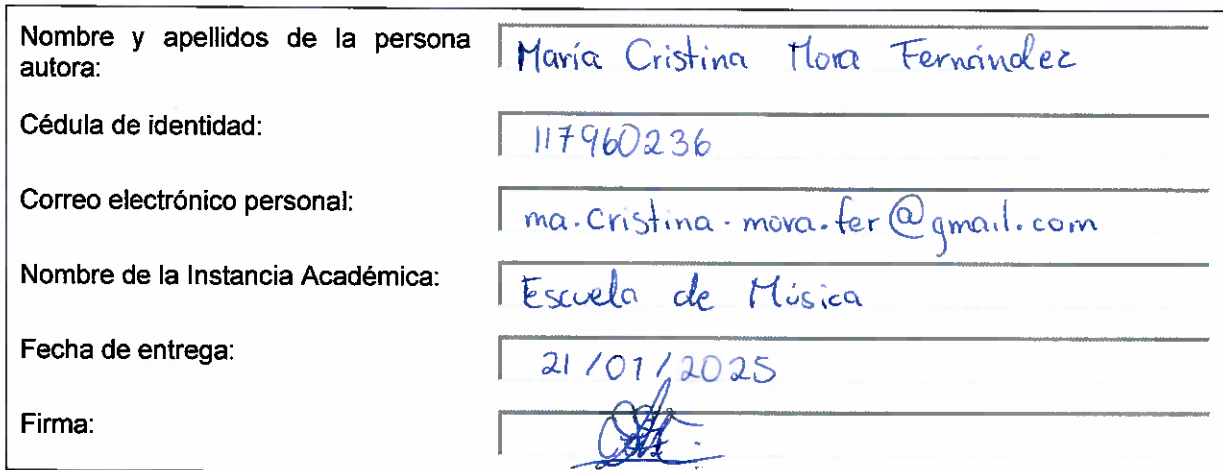 Nombre y apellidos de la persona autora:
María Cristina Mora Fernández
Cédula de identidad:
117960236
Correo electrónico personal:
ma.cristina.mora.fer@gmail.com
Nombre de la Instancia Académica:
Escuela de Música
Fecha de entrega:
21/01/2025
Firma: